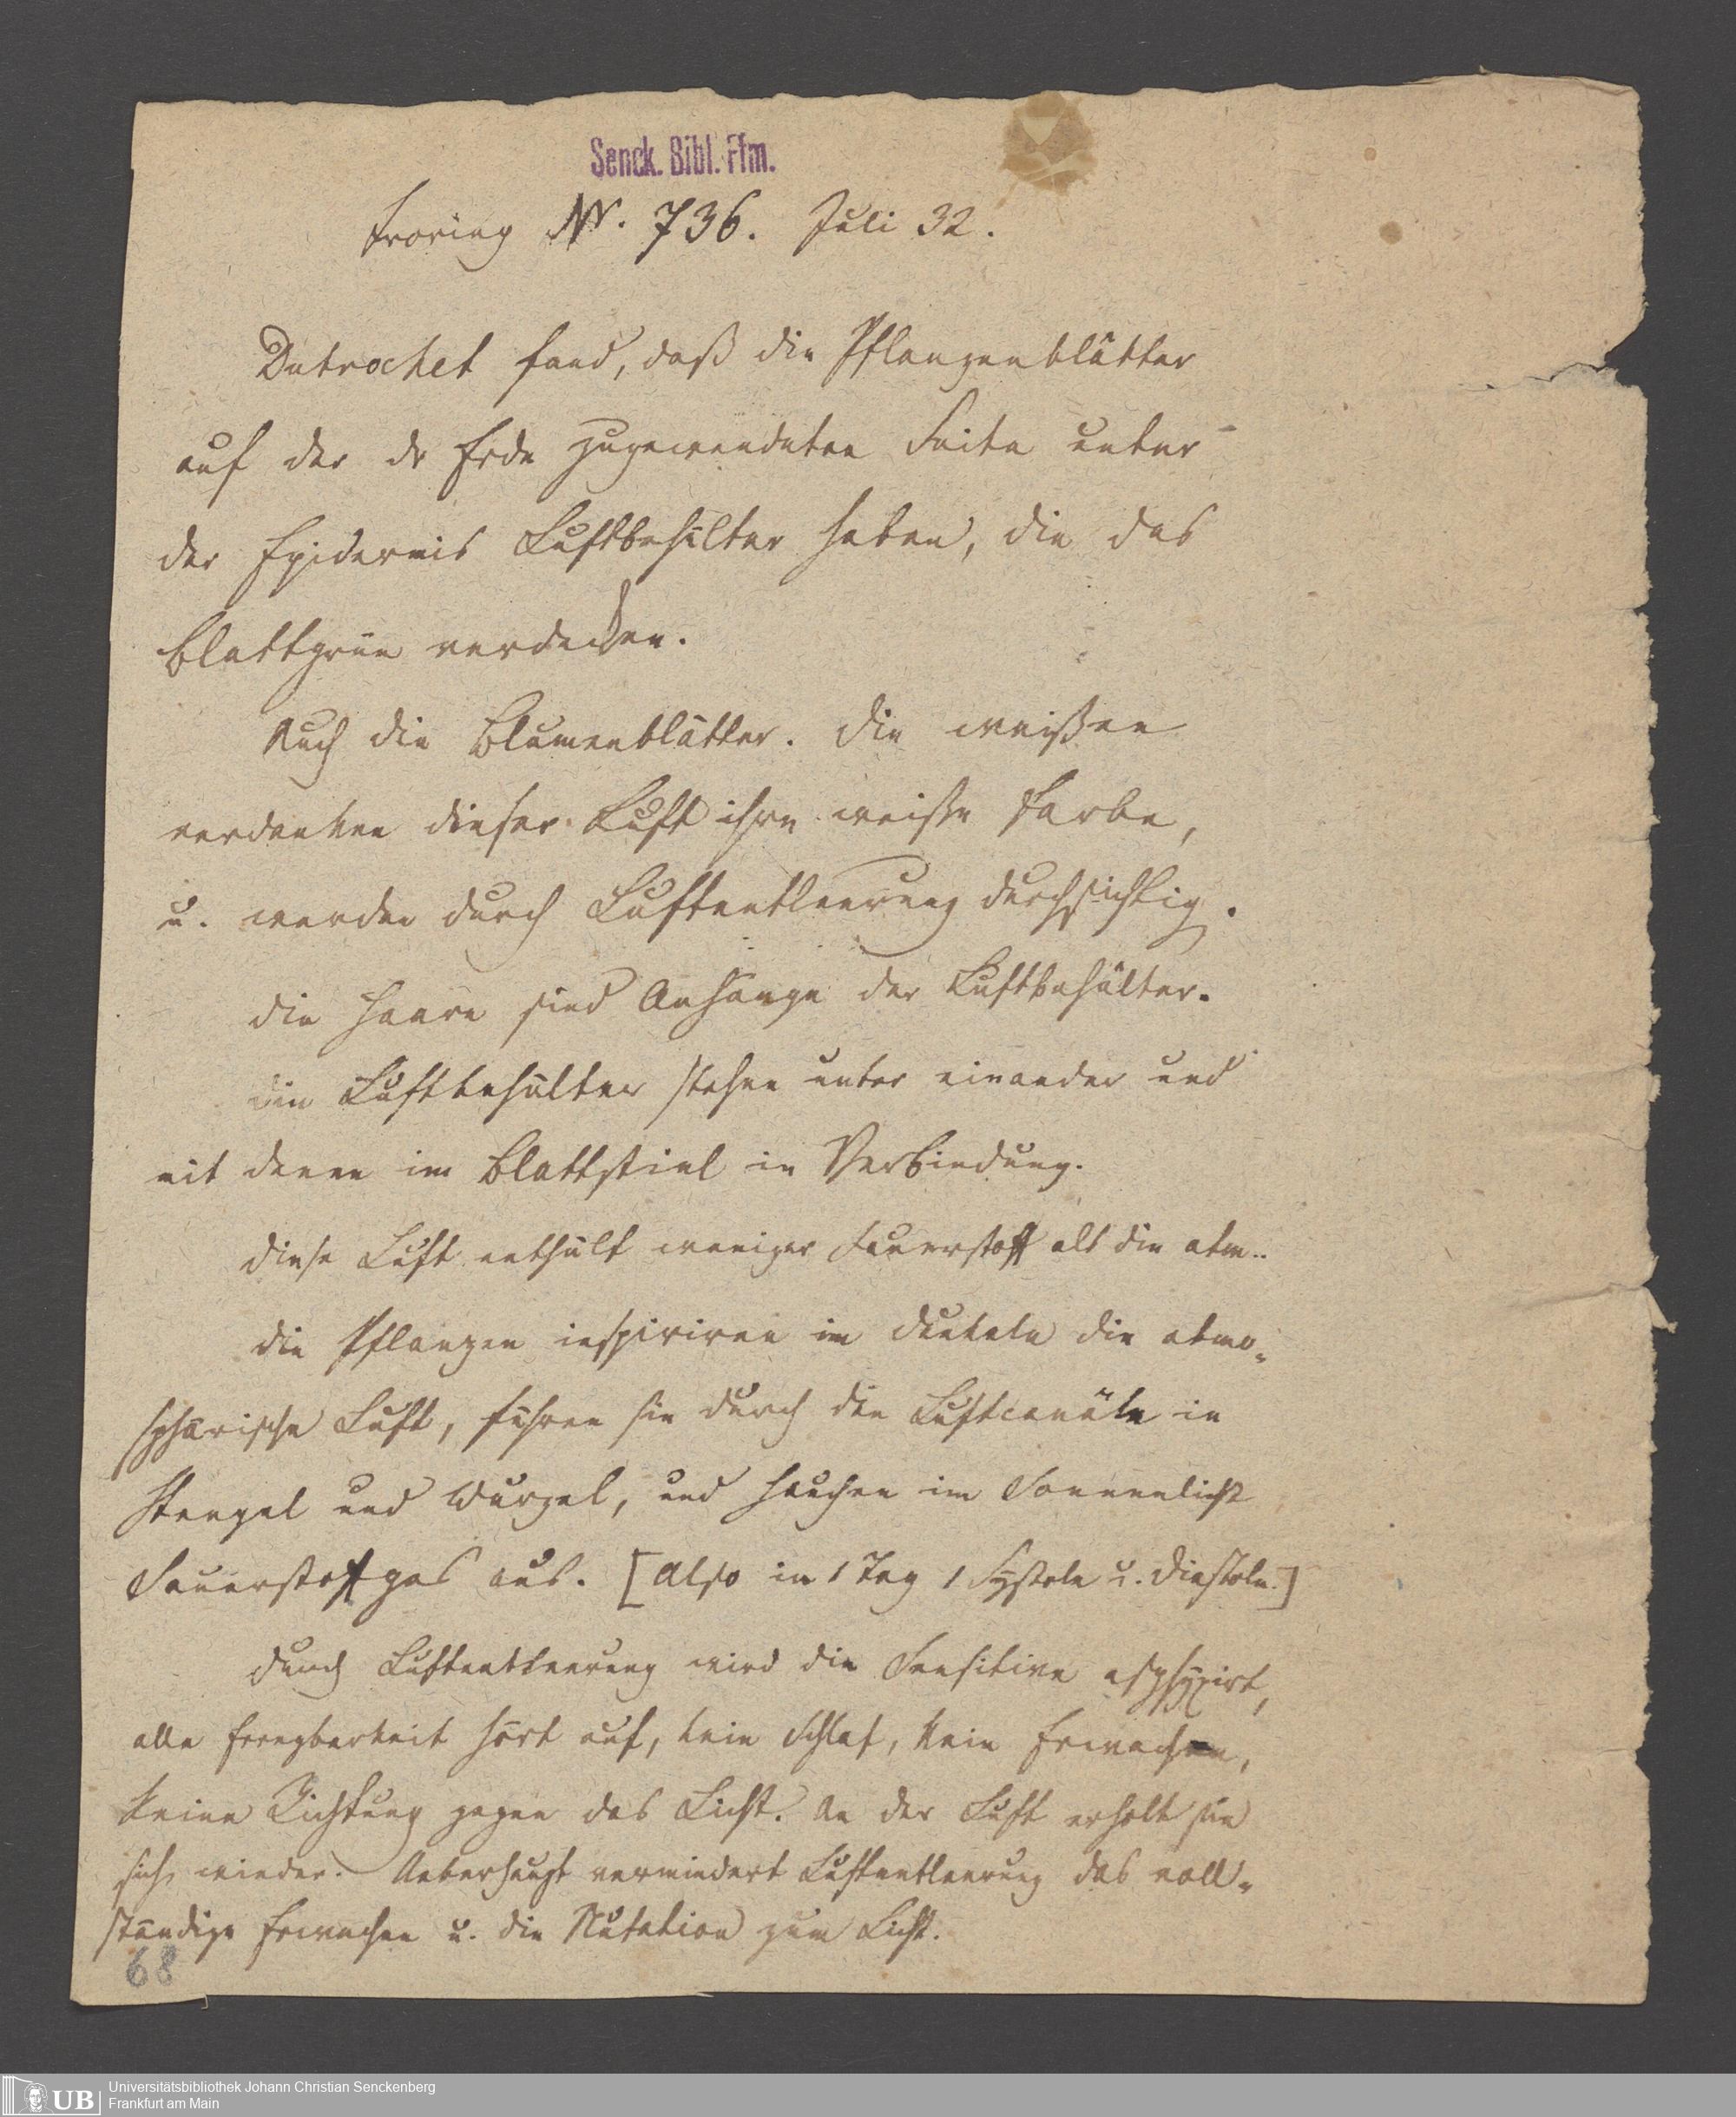 Senck. Bibl. Ffm.
Froriep Nr. 736. Juli 32.
Dutrochet fand, daß die Pflanzenblätter
auf der dr Erde zugewendeten Seite unter
der Epidermis Luftbehälter haben, die das
Blattgrün verdecken.
Auch die Blumenblätter. Die weißen
verdanken dieser Luft ihre weiße Farbe,
u. werden durch Luftentleerung durchsichtig.
Die Haare sind Anhänge der Luftbehälter.
Die Luftbehälter stehen unter einander und
mit denen im Blattstiel in Verbindung.
Diese Luft enthält weniger Sauerstoff als die atm..
Die Pflanzen inspiriren im Dunkeln die atmo„
sphärische Luft, führen sie durch die Luftcanäle in
Stengel und Wurzel, und hauchen im Sonnenlicht
Sauerstoffgas aus. [Also in 1 Tag 1 Systole u. Diastole.]
Durch Luftentleerung wird die Sensitive asphyxirt,
alle Erregbarkeit hört auf, kein Schlaf, kein Erwachen,
keine Richtung gegen das Licht. An der Luft erholt sie
sich wieder. Ueberhaupt vermindert Luftentleerung das voll„
ständige Erwachen u. die Nutation zum Licht.
68
UB
Universitätsbibliothek Johann Christian Senckenberg
Frankfurt am Main